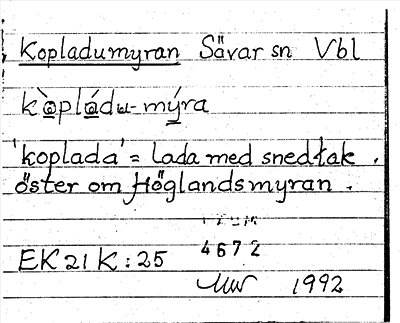 Kopladumyran Sävar sn Vbl
kòpládu-mýra
'koplada' = lada med snedtak.
öster om Höglandsmyran.
4672
EK 21 K: 25
1992